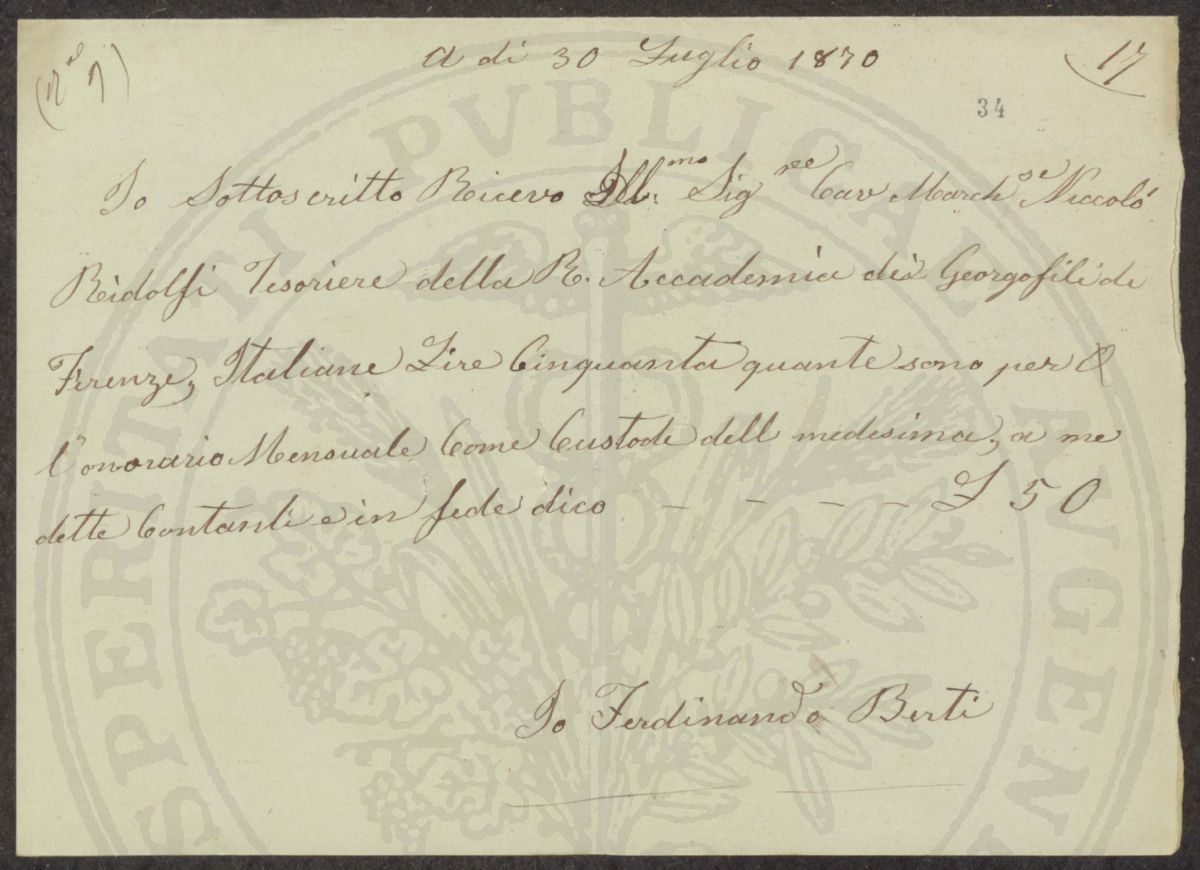 A di 30 Luglio 1870
17
34
Io Sottoscritto Ricevo Ill:mo Sigree Cav Marchse Niccolò
Ridolfi Tesoriere della R. Accademia dei Georgofili di
Firenze, Italiane Lire Cinquanta quante sono per
l'onorario Mensuale Come Custode dell medesima, a me
dette Contanti e in fede dico - - - - £ 50
Io Ferdinando Berti
PROSPERITATI PVBLICAE AVGENDAE